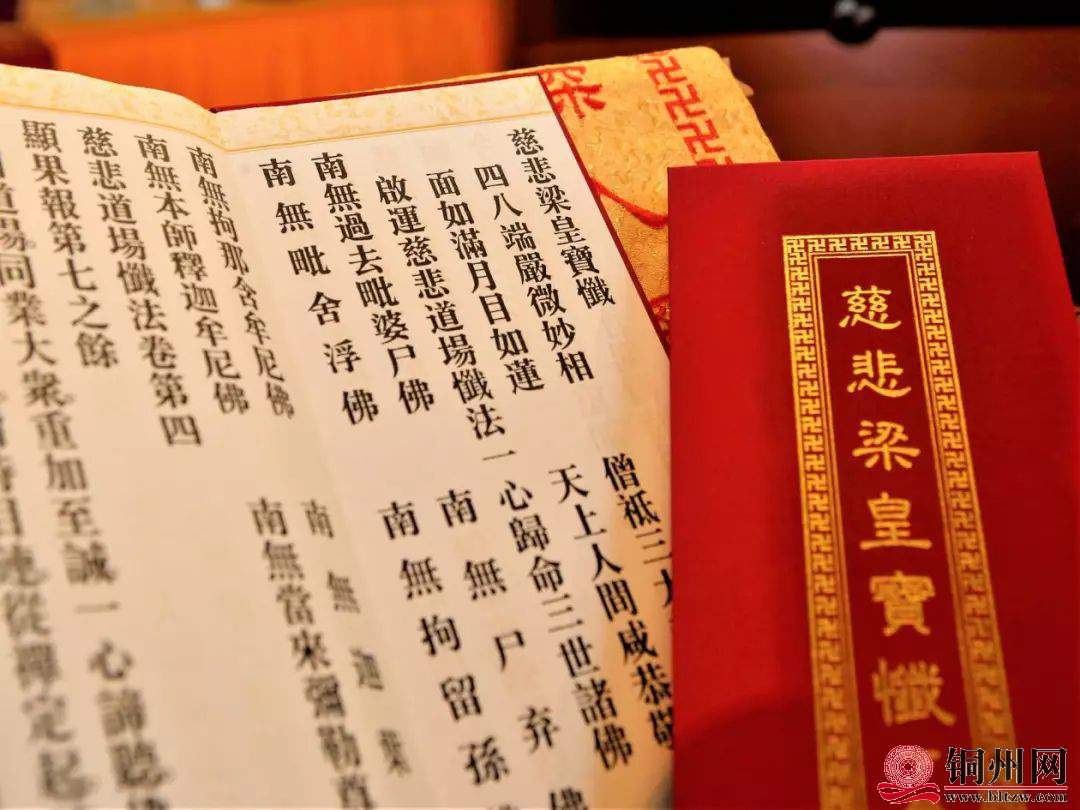 慈悲梁皇寶懺
四八端嚴微妙相 僧祇三大
面如滿月目如蓮 天上人間咸恭敬
啟運慈悲道場懺法一心歸命三世諸佛
南無過去毗婆尸佛 南無尸弃佛
南無毗舍浮佛 南無拘留孫
南無拘那含牟尼佛 南無迦葉
南無本師釋迦牟尼佛 南無當來彌勒尊
慈悲道場懺法卷第四
顯果報第七之餘
日道場同業大衆重加至誠一心諦聽
時目連從禪定起
慈悲梁皇寶懺
铜州网
www.hltzw.com